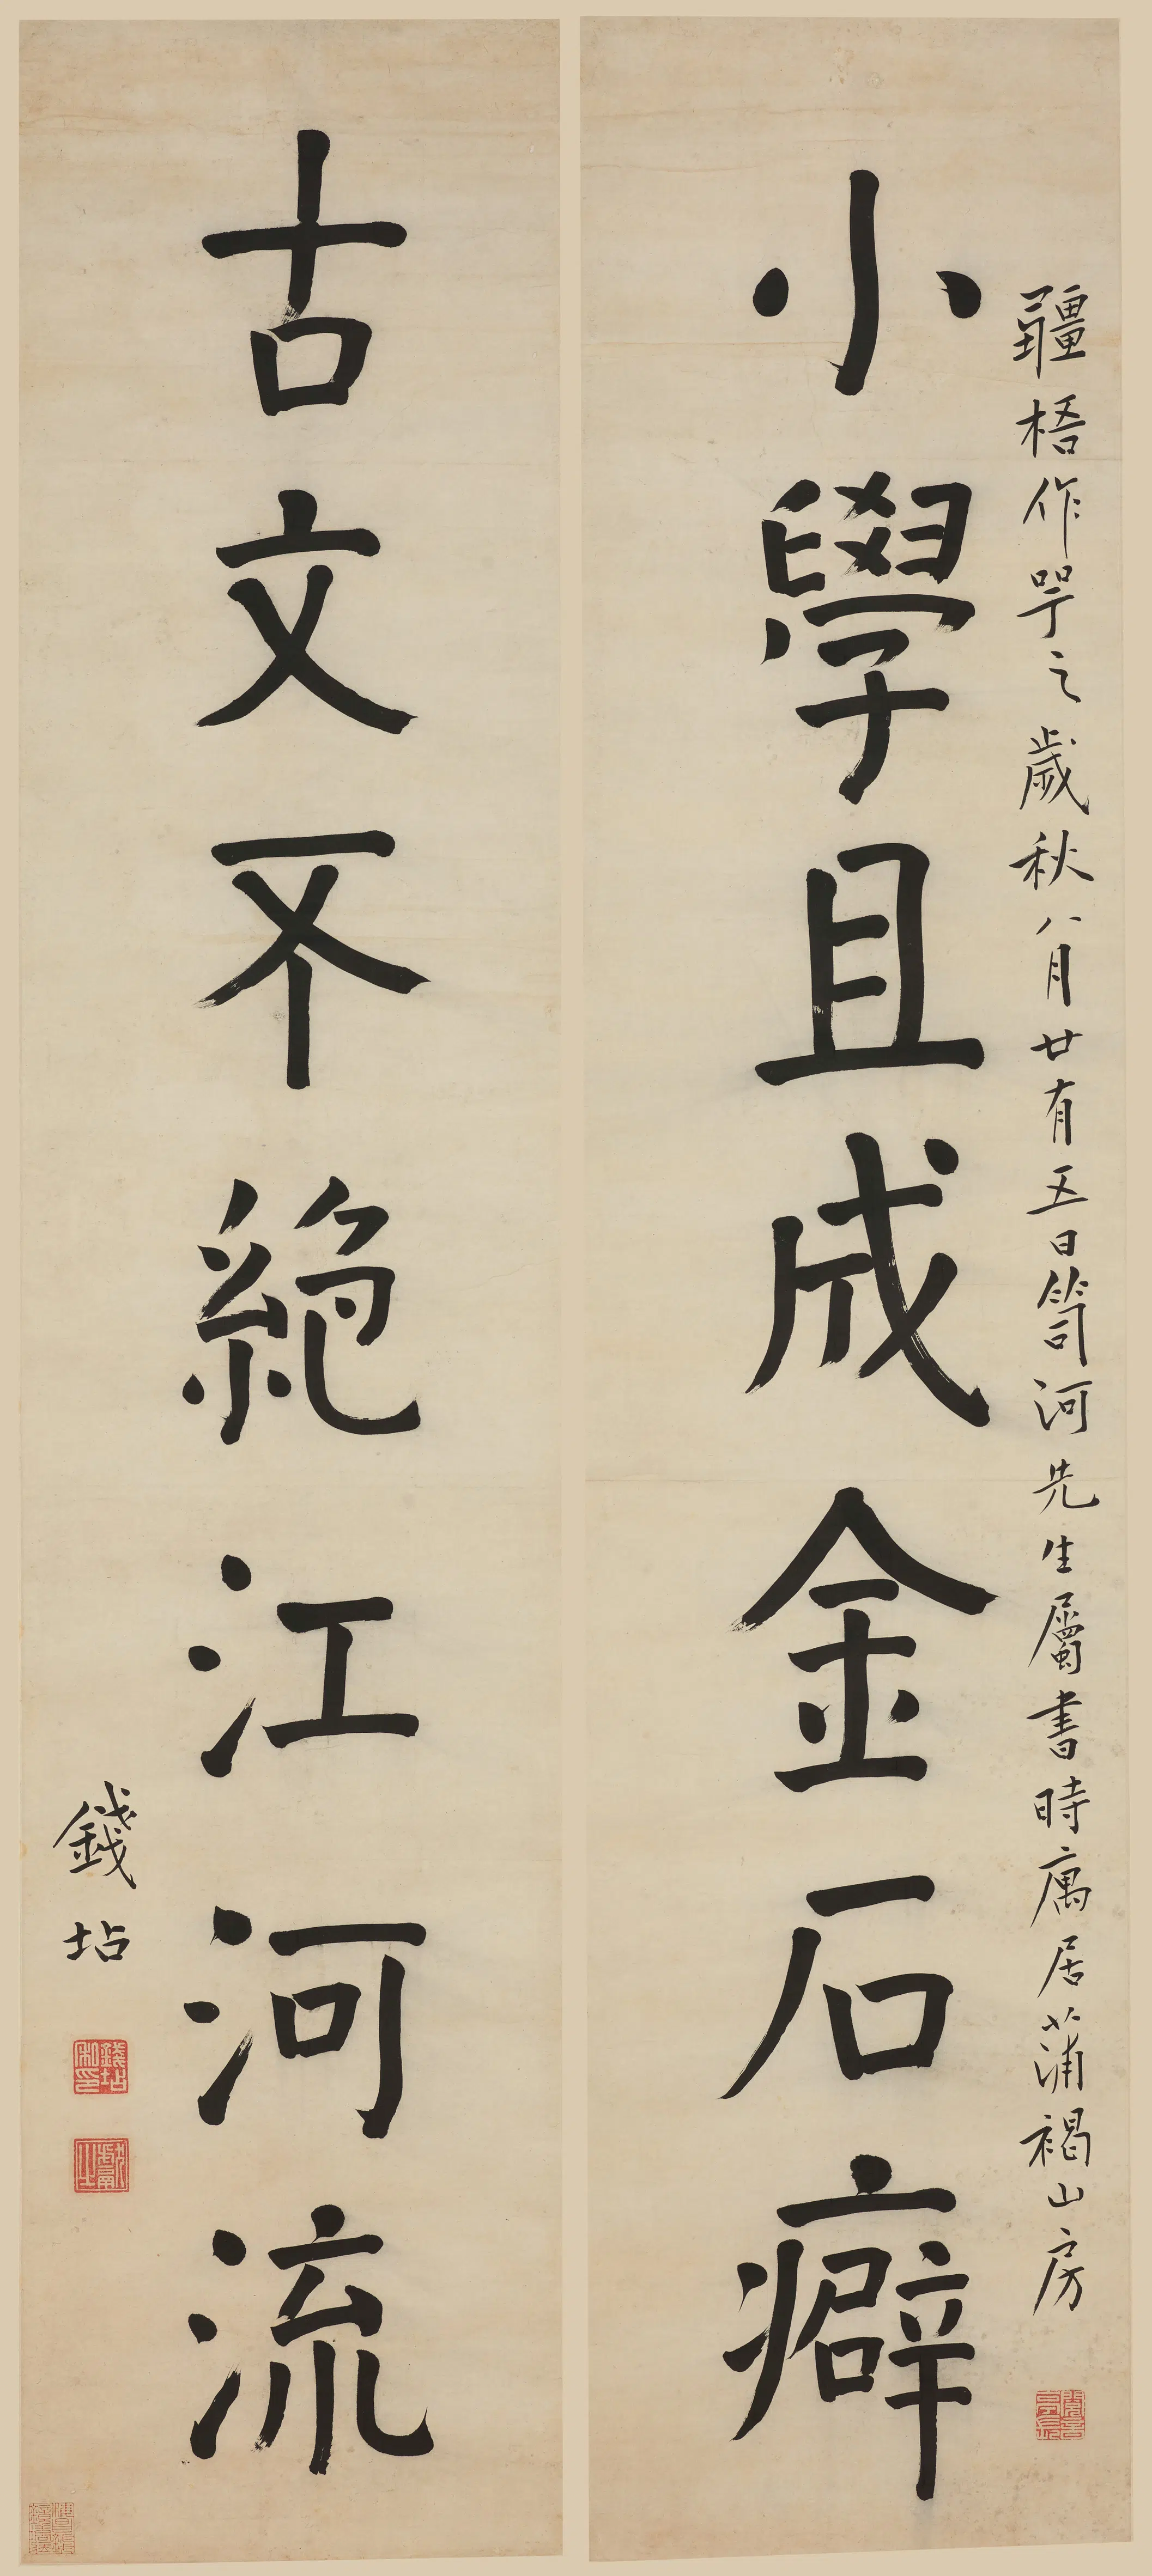 彊梧作咢之歲秋八月廿有五日笥河先生屬書時寓居蒲褐山房
小學且成金石癖
古文不絕江河流
錢坫
錢坫私印